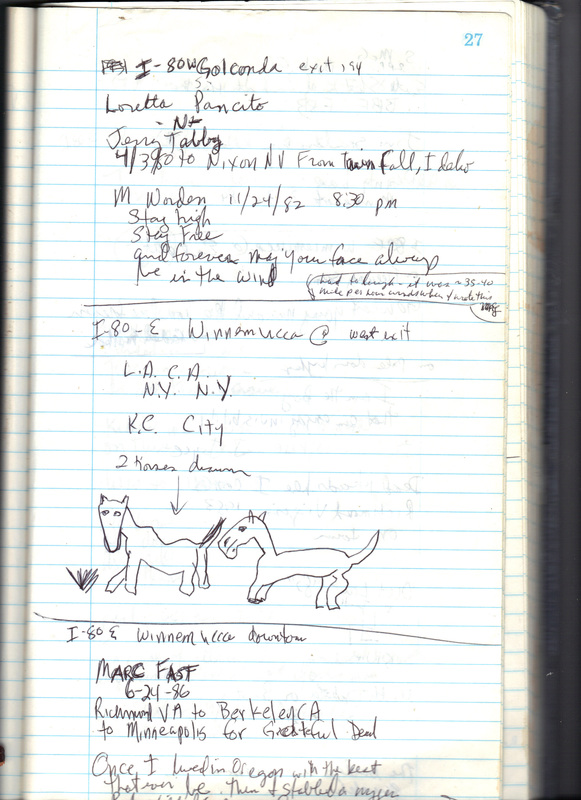 27
I-80W Golconda exit 194
Loretta Pancito
- N+
Jerry Tabby
4/3/80 to Nixon NV From Twin Fall, Idaho
M Worden 11/24/82 8:30 pm
Stay high
Stay Free
and forever may your face always
be in the wind
had to laugh - it was a 35-40
mile per hour wind when I wrote this
I-80-E Winnemucca @ west exit
L.A. C.A.
N.Y. N.Y.
K.C. City
2 Horses drawn
I-80 E Winnemucca downtown
MARC FAST
6-24-86
Richmond VA to Berkeley CA
to Minneapolis for Grateful Dead
Once I lived in Oregon with the best
that ever be. Then I stabbed a